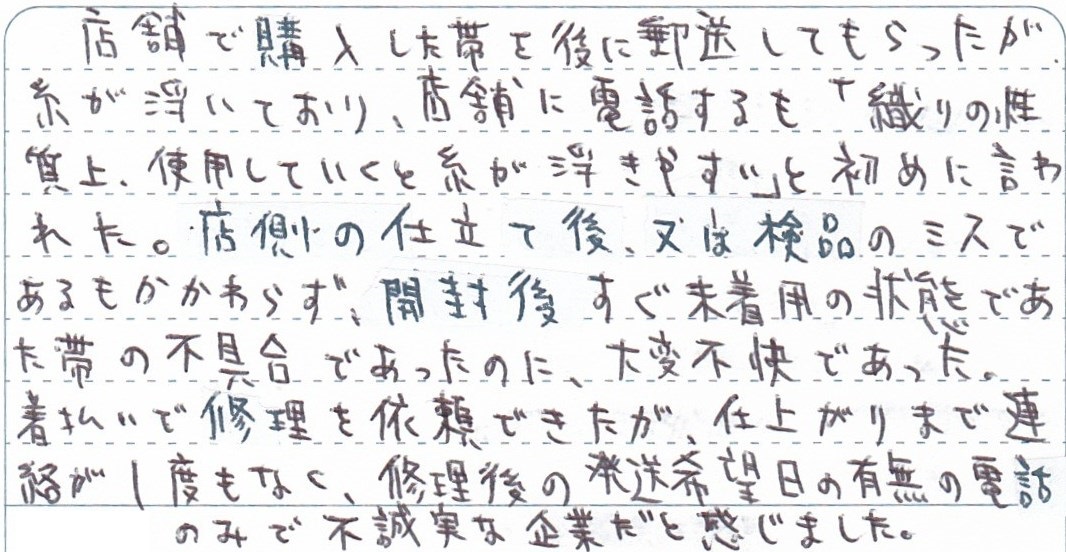 店舗で購入した帯を後に郵送してもらったが、
糸が浮いており、店舗に電話するも「織りの性
質上、使用していくと糸が浮きやすい」と初めに言わ
れた。店側の仕立て後、又は検品のミスで
あるもかかわらず、開封後すぐ未着用の状態であ
た帯の不具合であったのに、大変不快であった。
着払いで修理を依頼できたが、仕上がりまで連
絡が1度もなく、修理後の発送希望日の有無の電話
のみで不誠実な企業だと感じました。